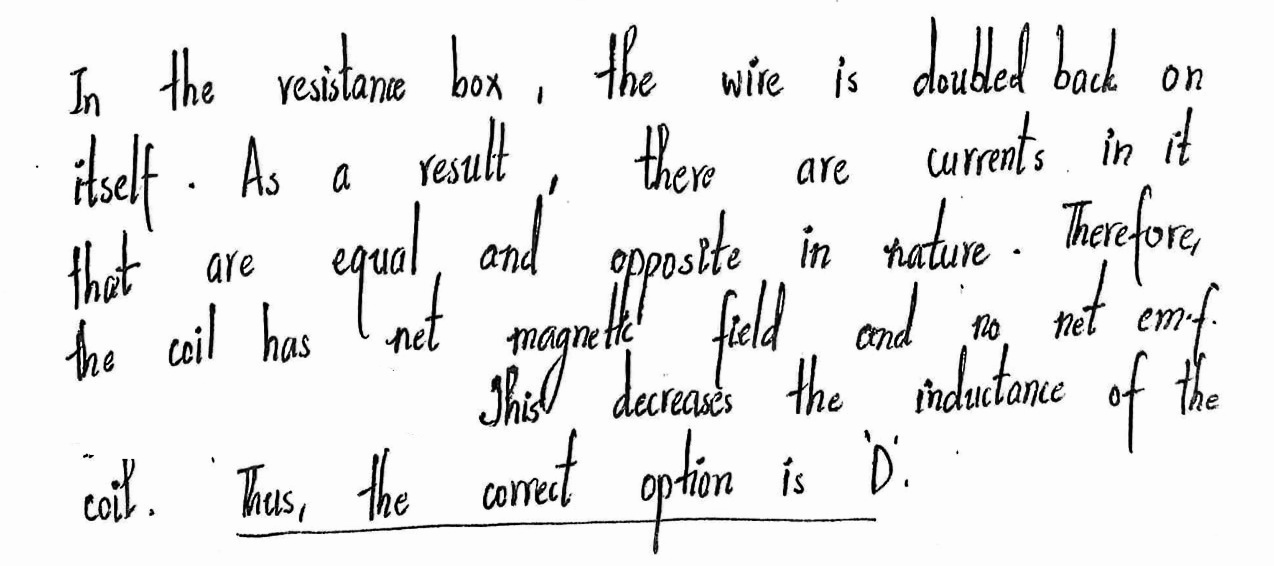 In the resistance box, the wire is doubled back on
itself. As a result, there are currents in it
that are equal and opposite in nature. Therefore,
the coil has net magnetic field and no net emf.
This decreases the inductance of the
coil. Thus, the correct option is 'D'.